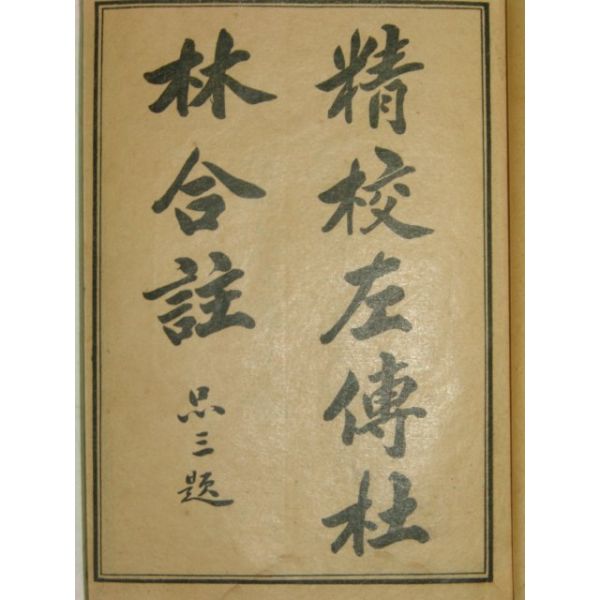 精校左傳杜
林合註
品三題